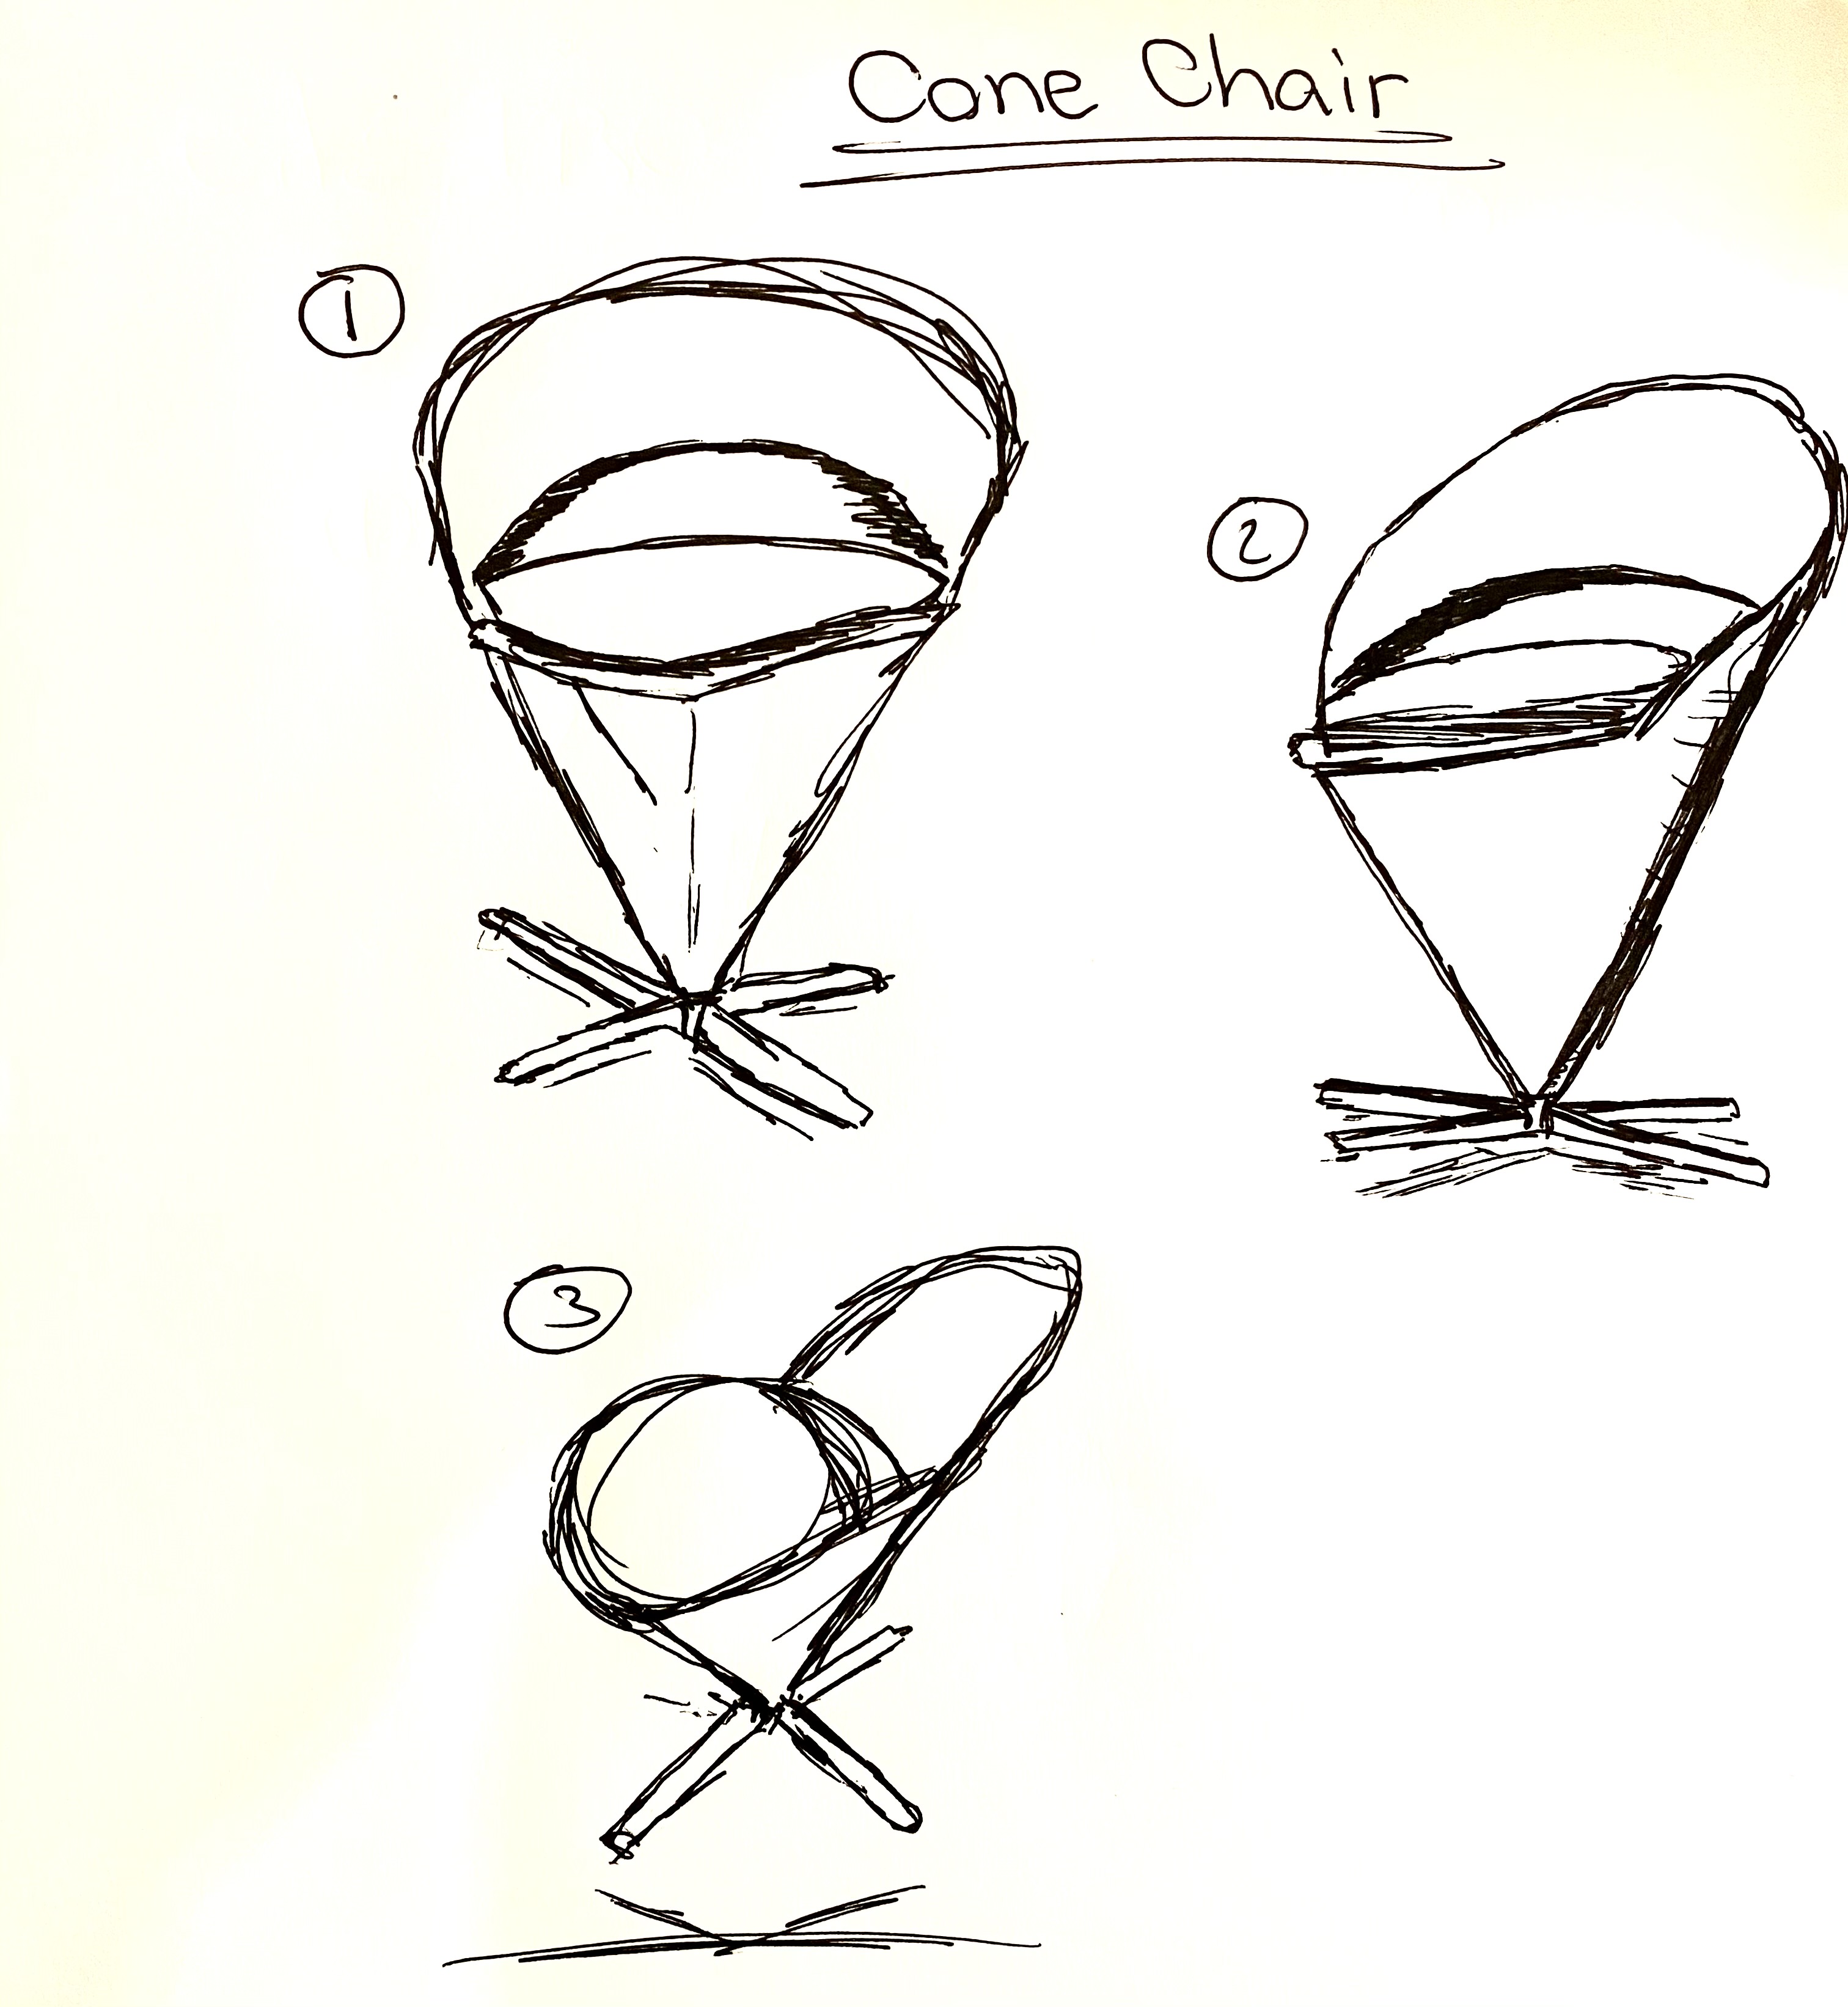 Cone Chair
1
2
3